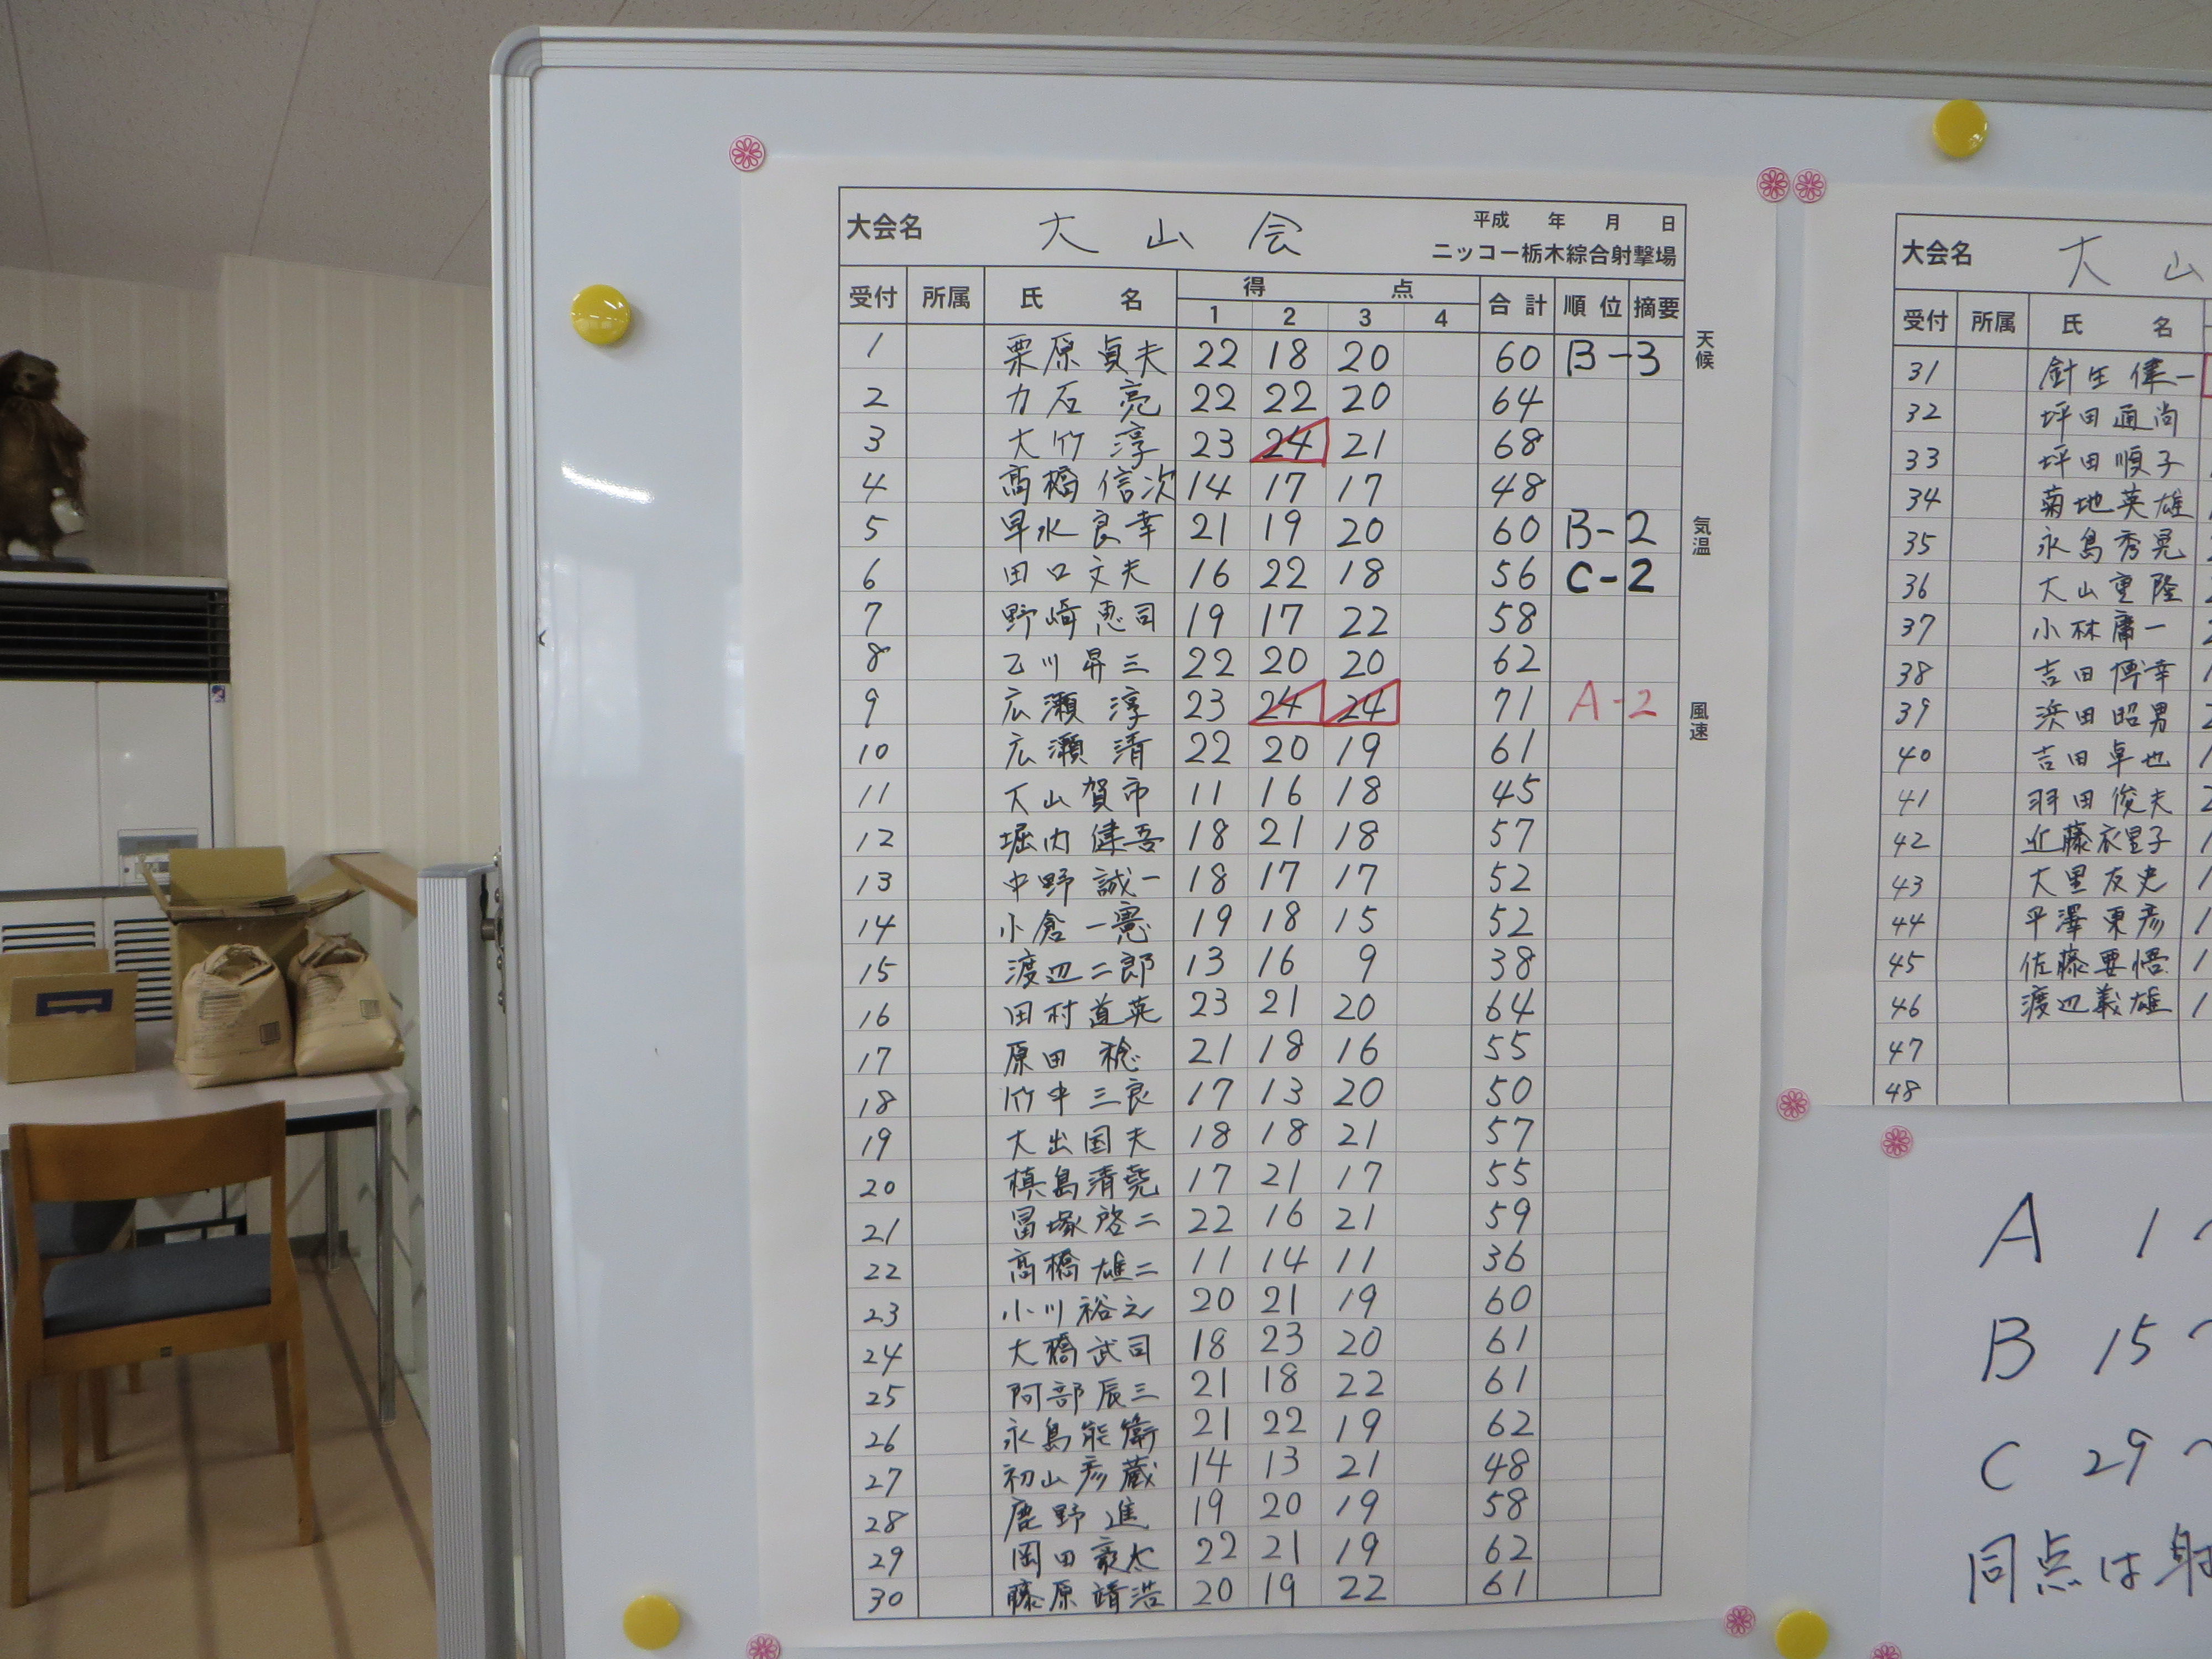 大会名 大山会 平成 年 月 日
ニッコー栃木綜合射撃場
受付 所属 氏名 得点 合計 順位 摘要
1 2 3 4
1 栗原貞夫 22 18 20 60 B-3
2 力石亮 22 22 20 64
3 大竹淳 23 24 21 68
4 高橋信次 14 17 17 48
5 早水良幸 21 19 20 60 B-2
6 田口文夫 16 22 18 56 C-2
7 野崎恵司 19 17 22 58
8 乙川昇三 22 20 20 62
9 広瀬淳 23 24 24 71 A-2
10 広瀬清 22 20 19 61
11 大山賀市 11 16 18 45
12 堀内健吾 18 21 18 57
13 中野誠一 18 17 17 52
14 小倉一憲 19 18 15 52
15 渡辺二郎 13 16 9 38
16 田村道英 23 21 20 64
17 原田稔 21 18 16 55
18 竹中三良 17 13 20 50
19 大出国夫 18 18 21 57
20 槙島清尭 17 21 17 55
21 冨塚啓二 22 16 21 59
22 高橋雄二 11 14 11 36
23 小川裕之 20 21 19 60
24 大橋武司 18 23 20 61
25 阿部辰三 21 18 22 61
26 永島能衛 21 22 19 62
27 初山彦蔵 14 13 21 48
28 鹿野進 19 20 19 58
29 岡田豪太 22 21 19 62
30 藤原靖浩 20 19 22 61
天候
気温
風速
大会名 大山
受付 所属 氏名
31 針生健一
32 坪田通尚
33 坪田順子
34 菊地英雄
35 永島秀晃
36 大山重隆
37 小林庸一
38 吉田博幸
39 浜田昭男
40 吉田卓也
41 羽田俊夫
42 近藤衣里子
43 大里友史
44 平澤東彦
45 佐藤要悟
46 渡辺義雄
47
48
A 1~
B 15~
C 29~
同点は射